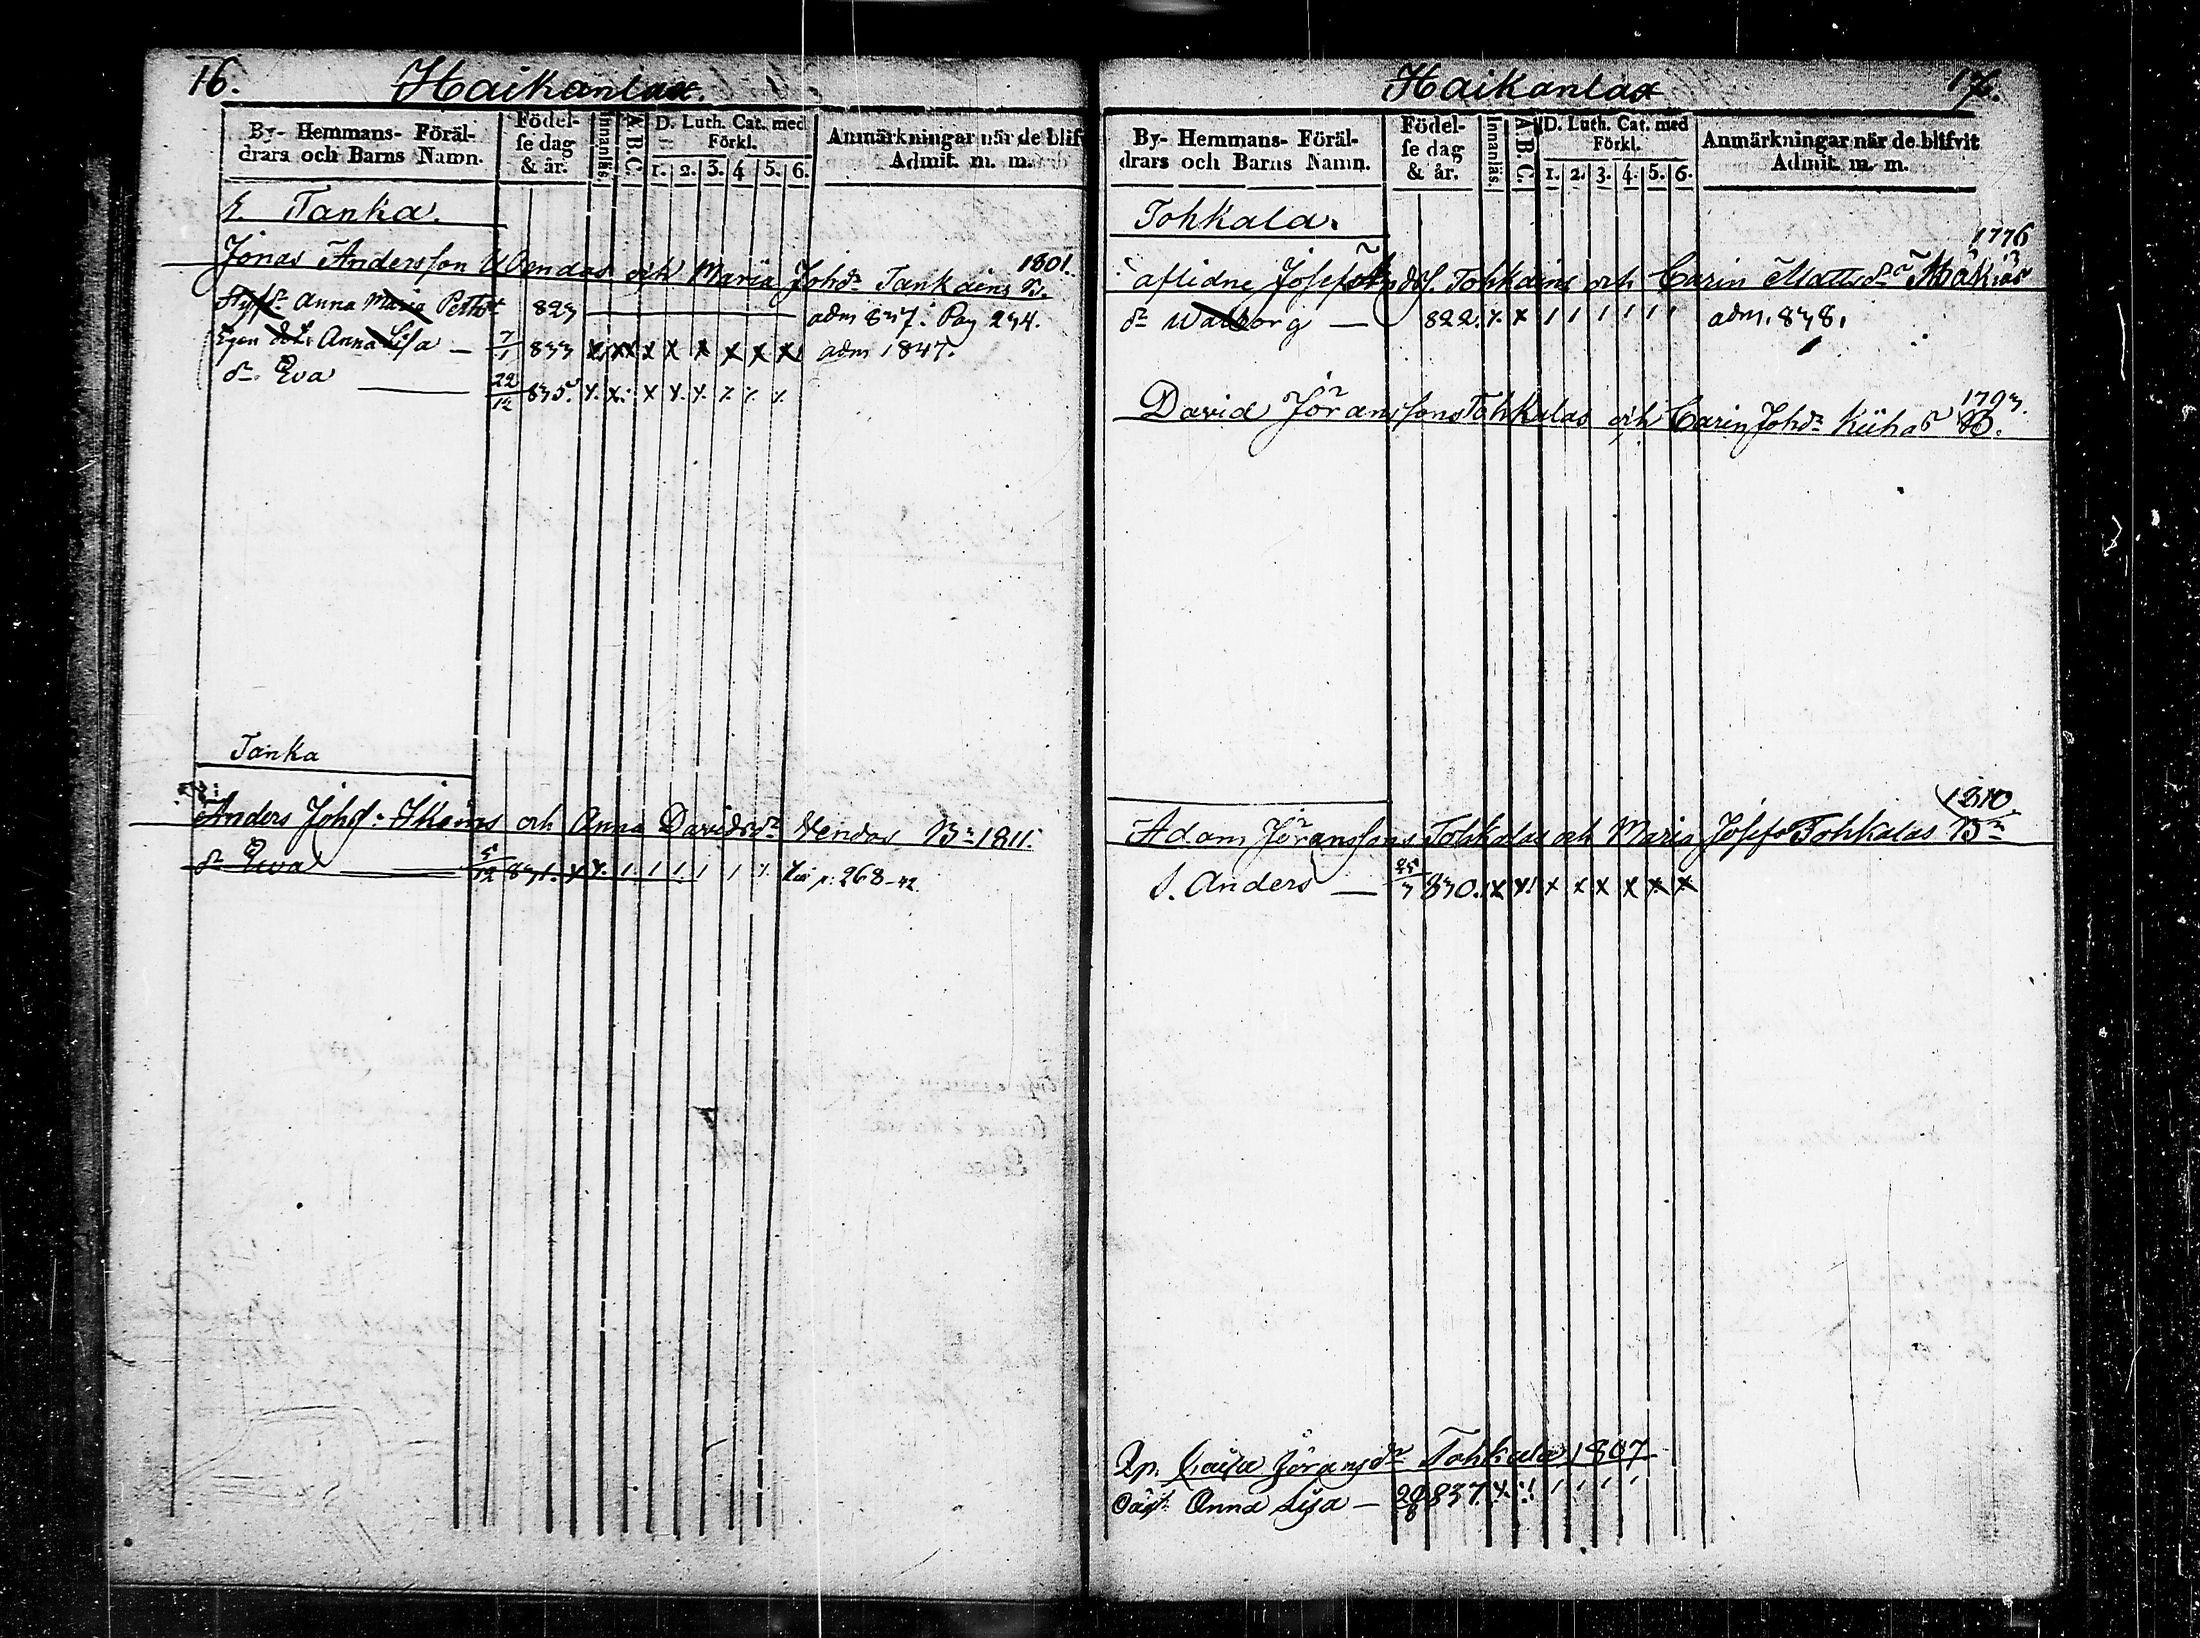 16.
Haikanlax.
By- Hemmans- Föräl-
drars och Barns Namn.
Födel-
se dag
& år.
Innanläs.
A.B.C.
D. Luth. Cat. med
Förkl.
1. 2. 3. 4 5. 6.
Anmärkningar när de blifv
Admit. m. m.
Tanka.
1801.
Jonas Andersson och Maria Johdr Tankains B.
Anna Maria 823 adm 837. Pag 234.
Egen dotr Anna Lisa — 7/1 833 x x x x x x x x adm 1847.
dr Eva — 22/12 835.
Tanka
Anders Johs: och Anna Davidsdr Br 1811.
dr Eva — 5/12 831. p. 268-42.
Haikanlax
17.
By- Hemmans- Föräl-
drars och Barns Namn.
Födel-
se dag
& år.
Innanläs.
A.B.C.
D. Luth. Cat. med
Förkl.
1. 2. 3. 4. 5. 6.
Anmärkningar när de blifvit
Admit. m. m.
Tohkala.
1776
aflidne Josef Tohkains och Carin Mattsdr
dr Walborg — 822. adm. 838.
1793.
David Göranssons Tohkalas och Carin Johdr Kiihas B.
1810
Adam Göranssons Tohkalas och Maria Josefs Tohkalas Br
S. Anders — 25/3 830. x x x x x x x x
Göransdr Tohkala 1807
Oäkt. Anna Lisa — 28/8 837